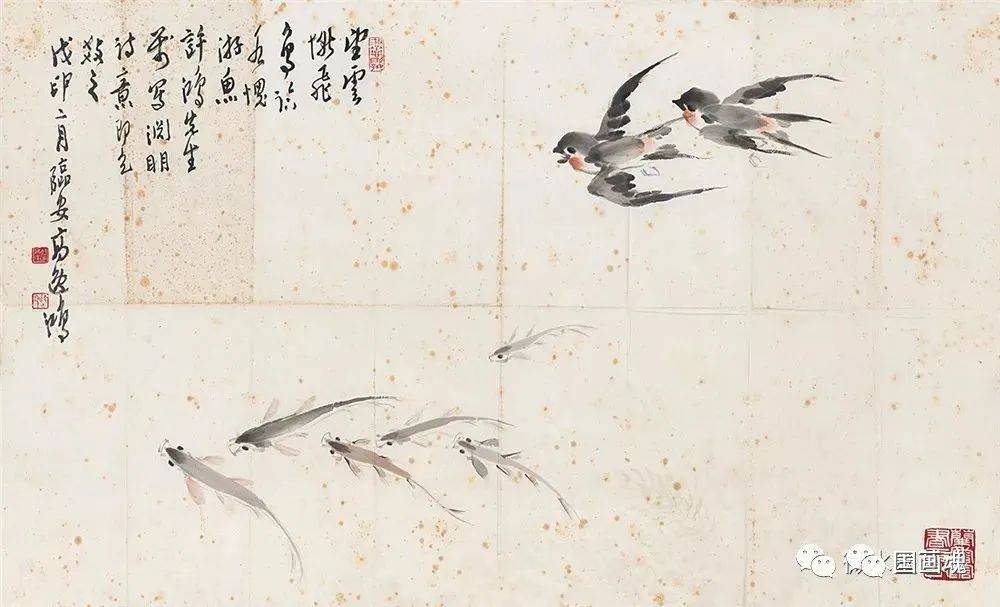 望雲
慚飛
鳥臨
水愧
游魚
許鴻先生
屬寫淵明
詩意即乞
教之
戊卯二月臨安高逸鴻
国画魂